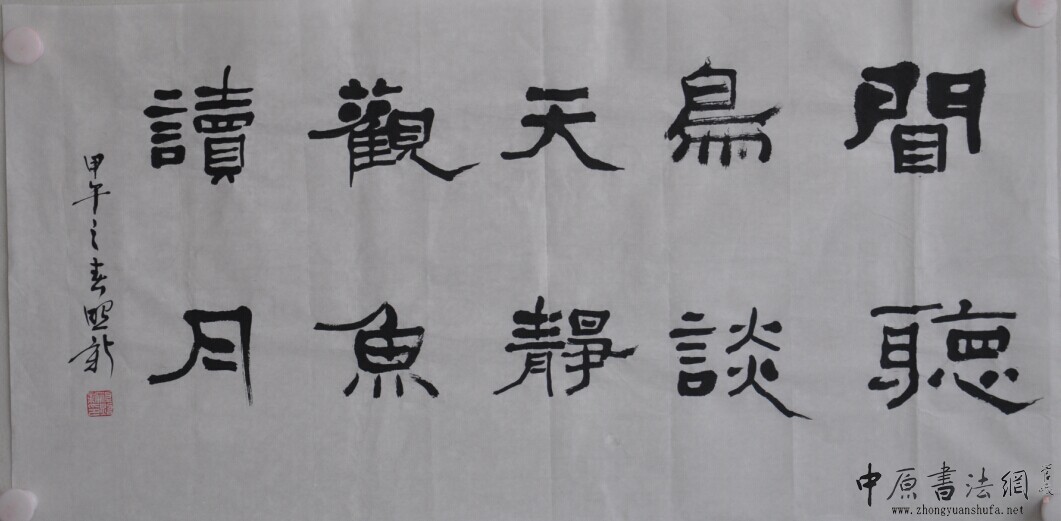 閒聽
鳥談
天靜
觀魚
讀月
甲午之春照新
中原書法網
www.zhongyuanshufa.net